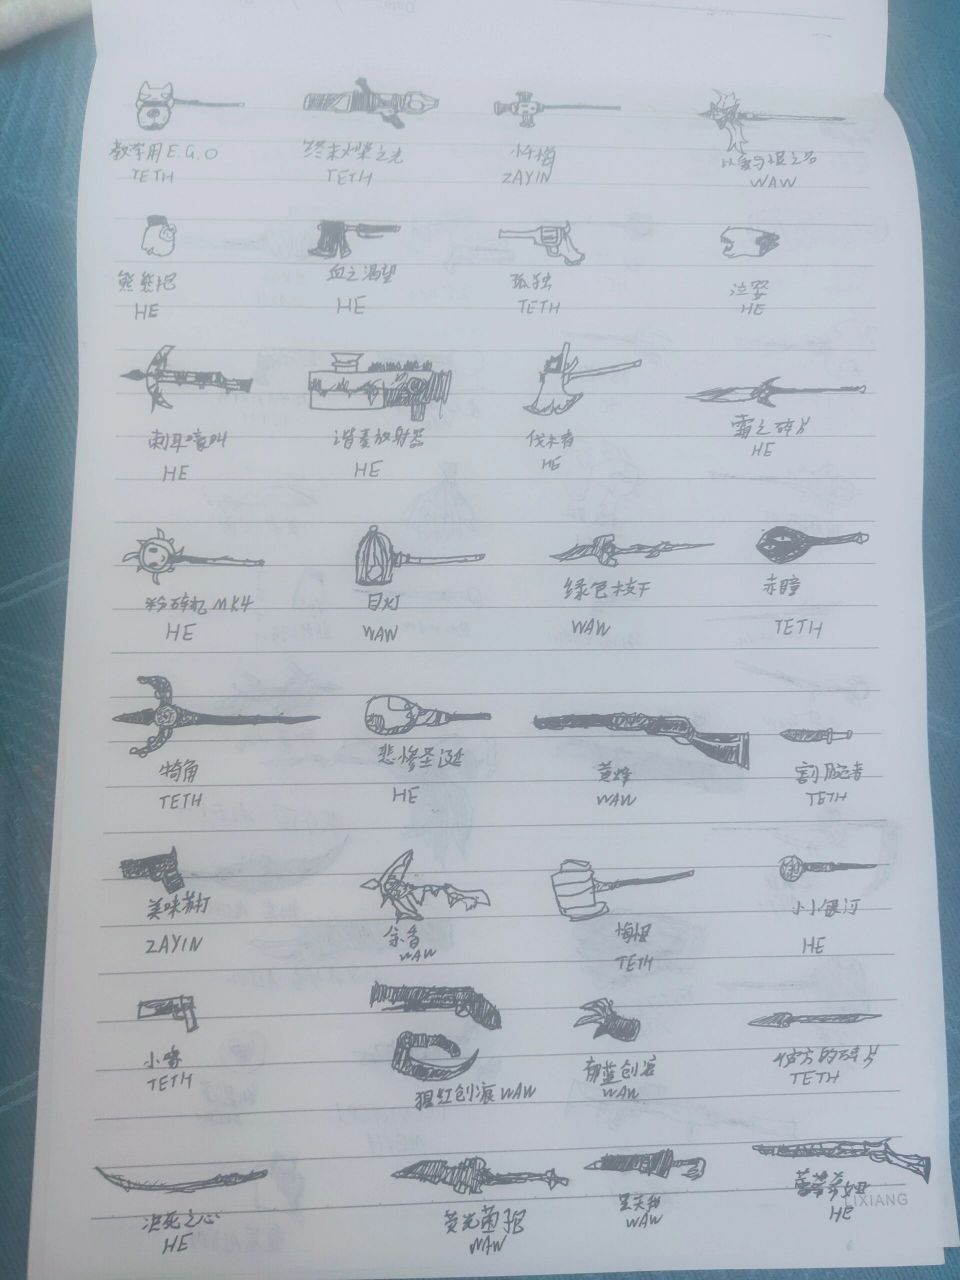 教学用E.G.O
TETH
终末火柴之光
TETH
忏悔
ZAYIN
以爱与恨之名
WAW
熊熊抱
HE
血之渴望
HE
孤独
TETH
泣婴
HE
刺耳嚎叫
HE
谐奏放射器
HE
伐木者
HE
霜之碎片
HE
粉碎机MK4
HE
目灯
WAW
绿色枝干
WAW
赤瞳
TETH
犄角
TETH
悲惨圣诞
HE
黄蜂
WAW
割腕者
TETH
美味苏打
ZAYIN
余香
WAW
悔恨
TETH
小小银河
HE
小喙
TETH
猩红创痕 WAW
郁蓝创痕
WAW
彼方的碎片
TETH
决死之心
HE
荧光菌
WAW
WAW
HE
LIXIANG